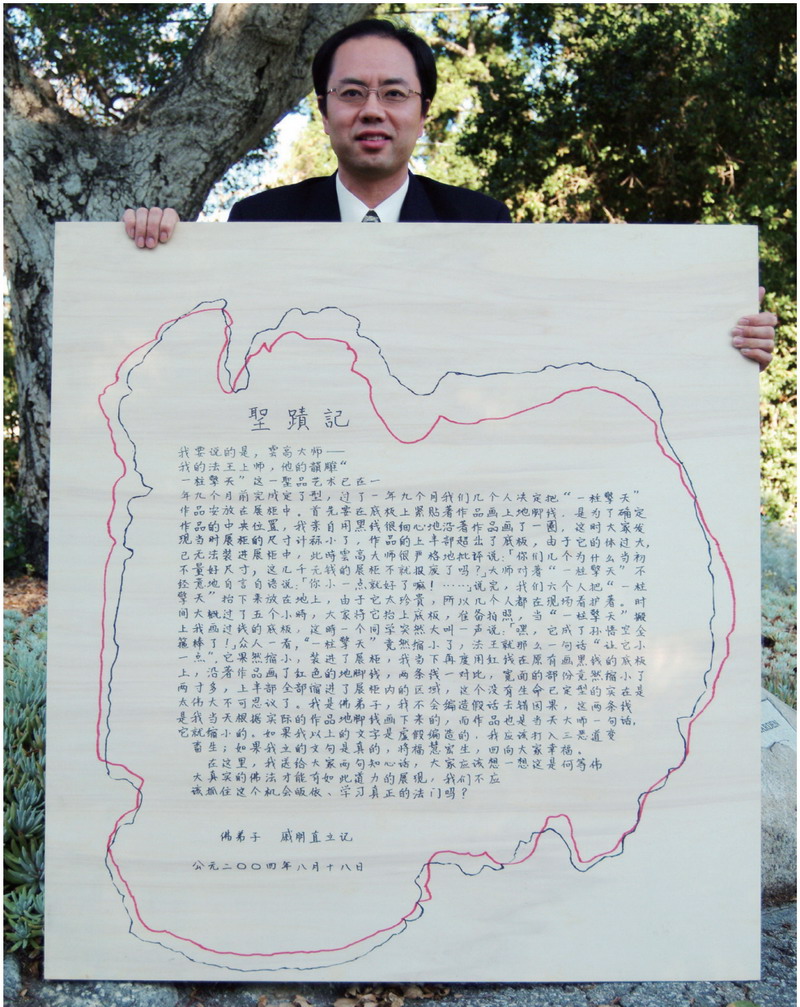 聖蹟記
我要说的是，雲高大师——
我的法王上师，他的韻雕“
一柱擎天”这一聖品艺术已在一
年九个月前完成定了型，过了一年九个月我们几个人决定把“一柱擎天”
作品安放在展柜中。首先要在底板上紧贴著作品画上地脚线，是为了确定
作品的中央位置，我亲自用黑线很细心地沿著作品画了一圈，这时大家发
现当时展柜的尺寸计祘小了，作品的上半部超出了底板，由于它的体过大，
已无法装进展柜中，此時雲高大师很严格地批评说：「你们几个为什么当初
不量好尺寸，这几千元钱的展柜不就报废了吗？」大师对著“一柱擎天”不
经意地自言自语说：「你小一点就好了嘛！……」说完，我们六个人把“一柱
擎天”抬下来放在地上，由于它太珍贵，所以几个人都在现场看护著。时
间大概过了五个小時，大家将它抬上底板，准备拍照，当“一柱擎天”搬
上我画过线的底板，这時一个同学突然大叫一声说：「嘿，它成了孙悟空金
箍棒了！」众人一看，“一柱擎天”竟然缩小了，法王就那么一句话“让它小
一点”，它果然缩小，装进了展柜，我当下再度用红线在原有画黑线的底板
上，沿著作品画了红色的地脚线，两条线一对比，宽面的部份竟然缩小了
两寸多，上半部全部缩进了展柜内的区域，这个没有生命已定型的实在是
太伟大不可思议了。我是佛弟子，我不会编造假话去错因果，这两条线
是我当天根据实际的作品地脚线画下来的，而作品也是当天大师一句话，
它就缩小的。如果我以上的文字是虚假偏造的，我应该打入三恶道变
畜生；如果我立的文句是真的，将福慧宏生，回向大家幸福。
在这里，我送给大家两句知心话，大家应该想一想这是何等伟
大真实的佛法才能有如此道力的展现，我们不应
该抓住这个机会皈依、学习真正的法门吗？
佛弟子 戚朋直立记
公元二〇〇四年八月十八日